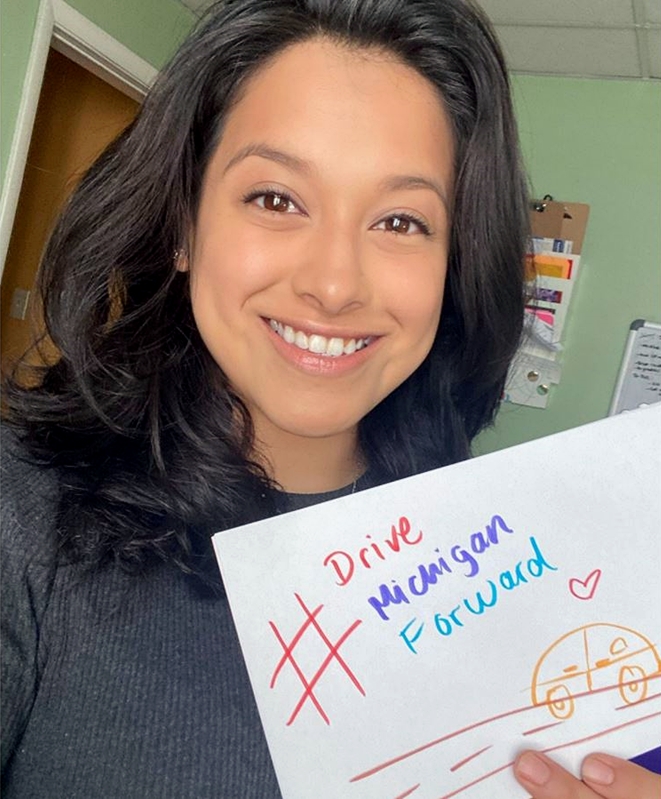 Drive
#Michigan
Forward